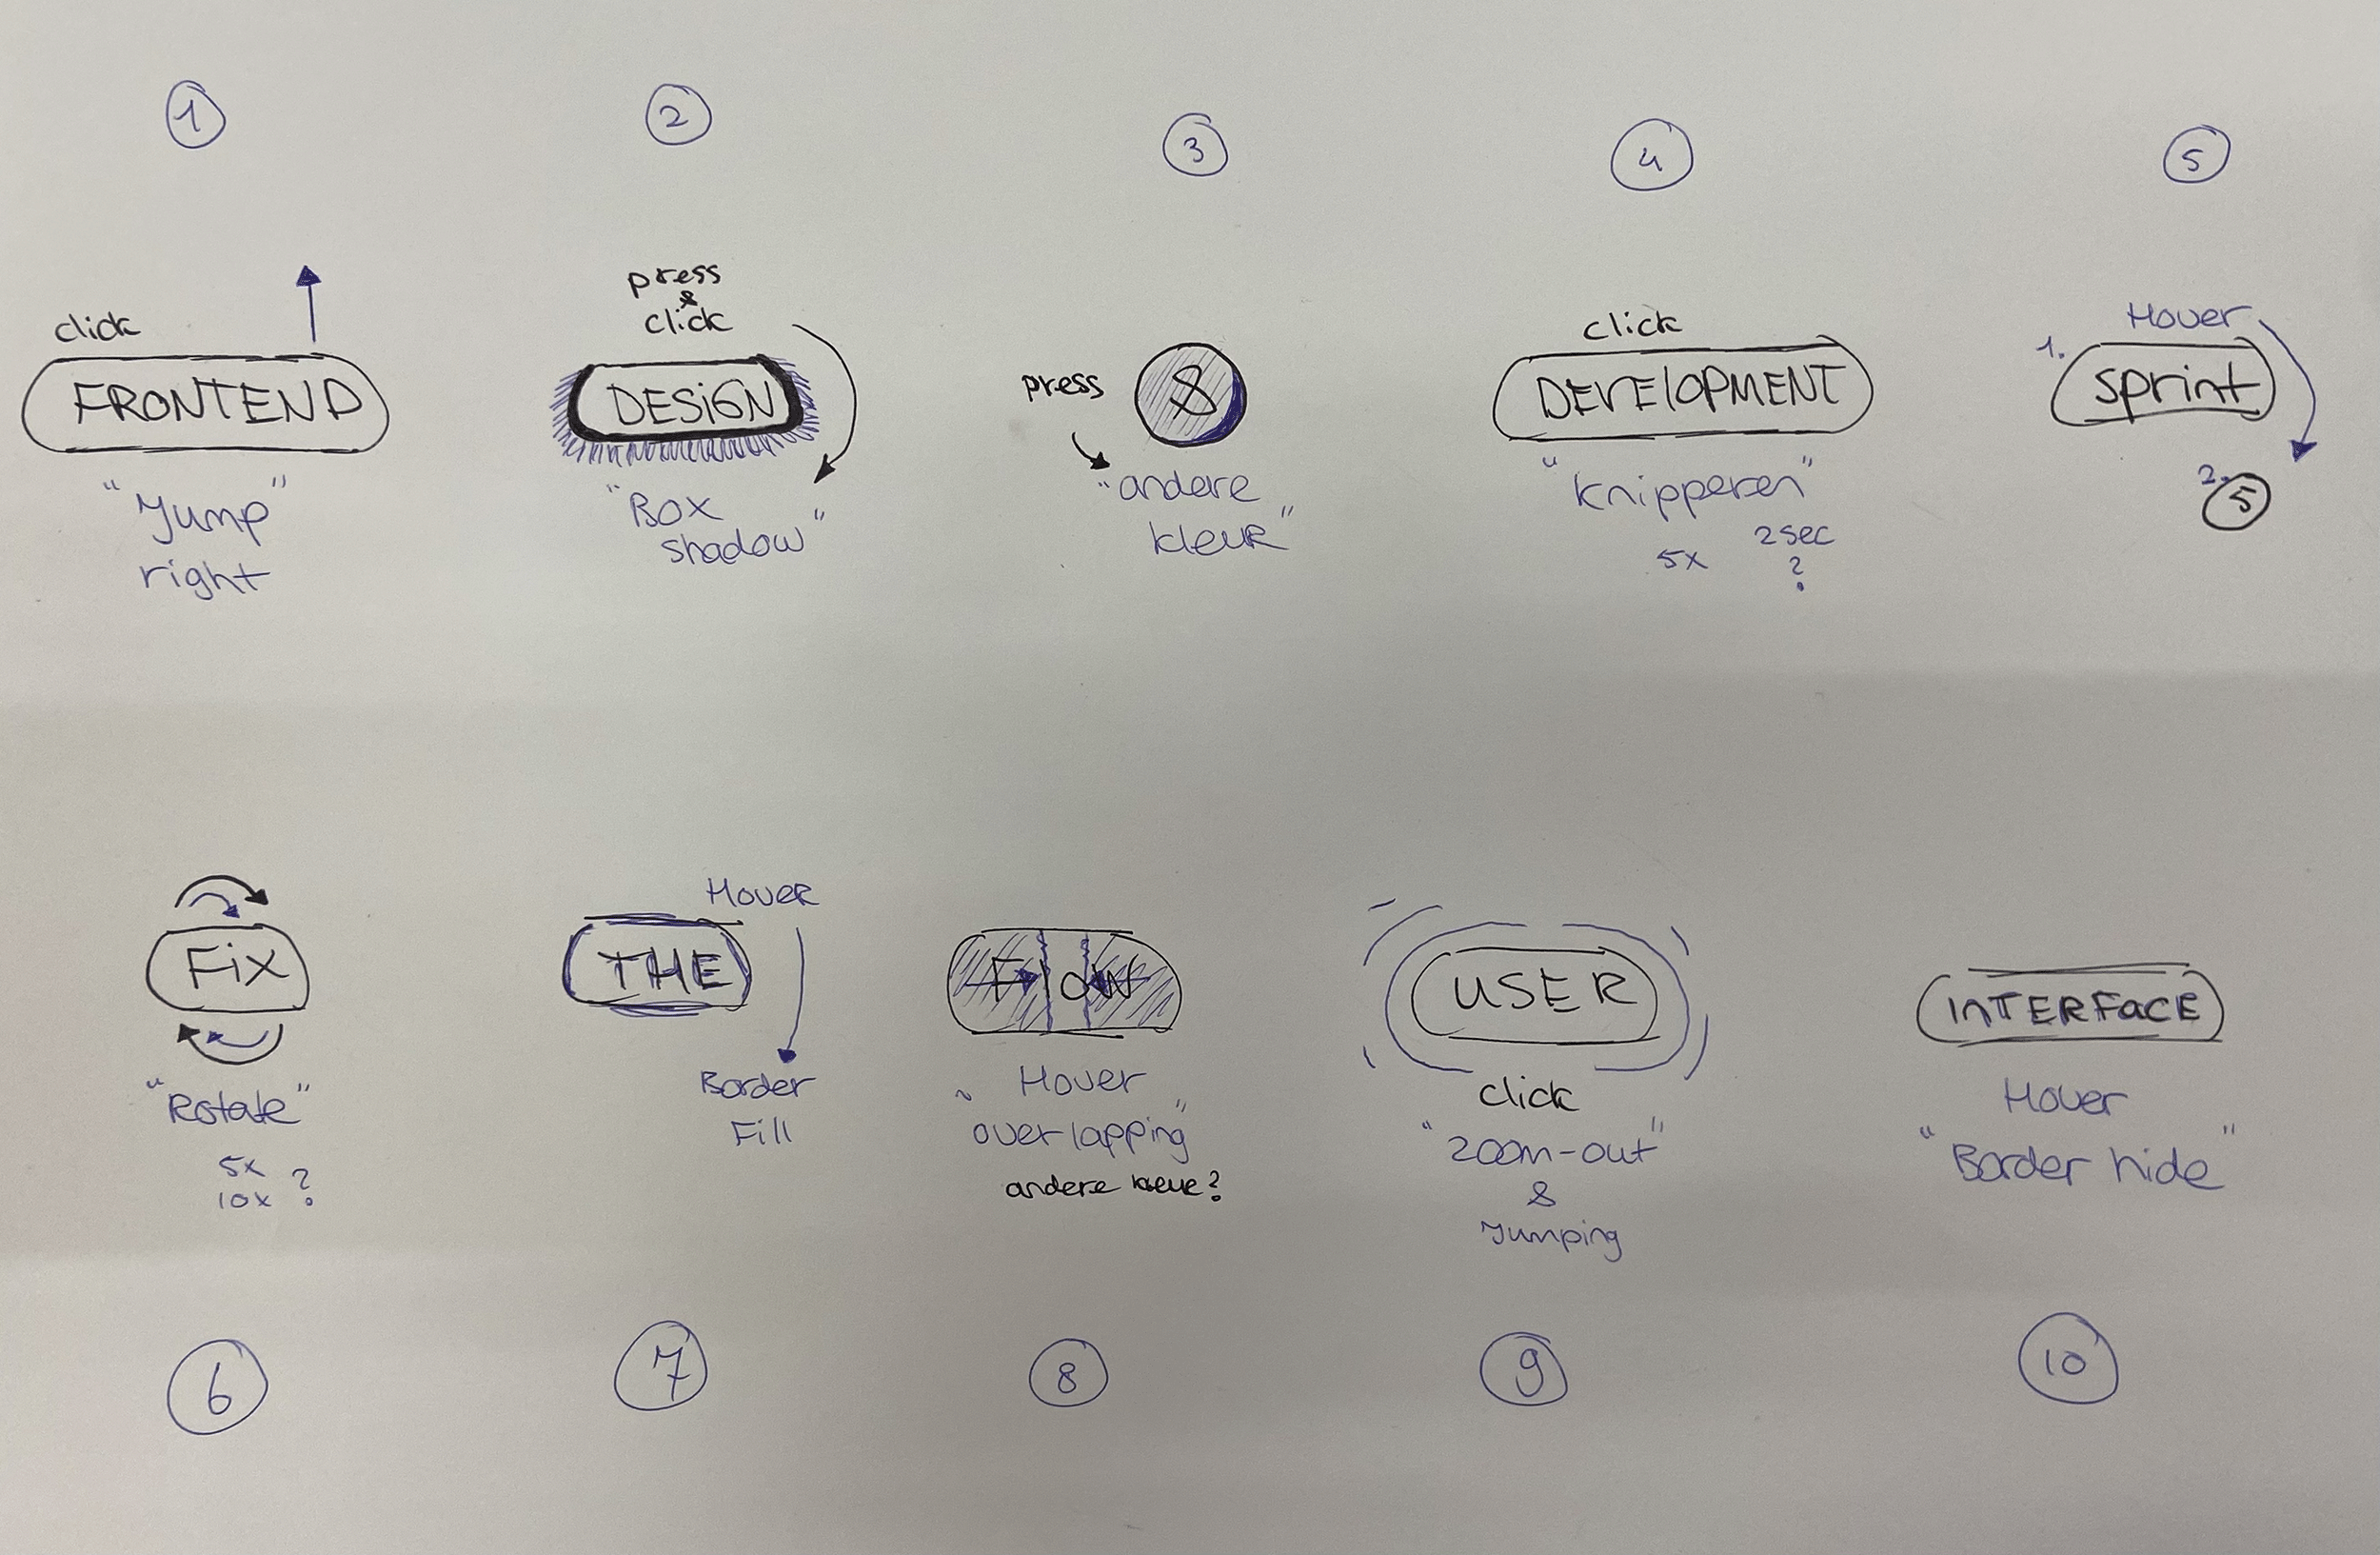 1
click
FRONTEND
"Jump"
right
2
press
&
click
DESiGN
"Box
shadow"
3
press
&
"andere
kleur"
4
click
DEVElOPMENT
"knipperen"
5x
2sec
?
5
Hover
1.
sprint
2.
5
Fix
"Rotate"
5x
10x ?
6
Hover
THE
Border
Fill
7
Flow
Hover
"overlapping"
andere kleur?
8
USER
click
"zoom-out"
&
Jumping
9
inTERFaCE
Hover
"Border hide"
10